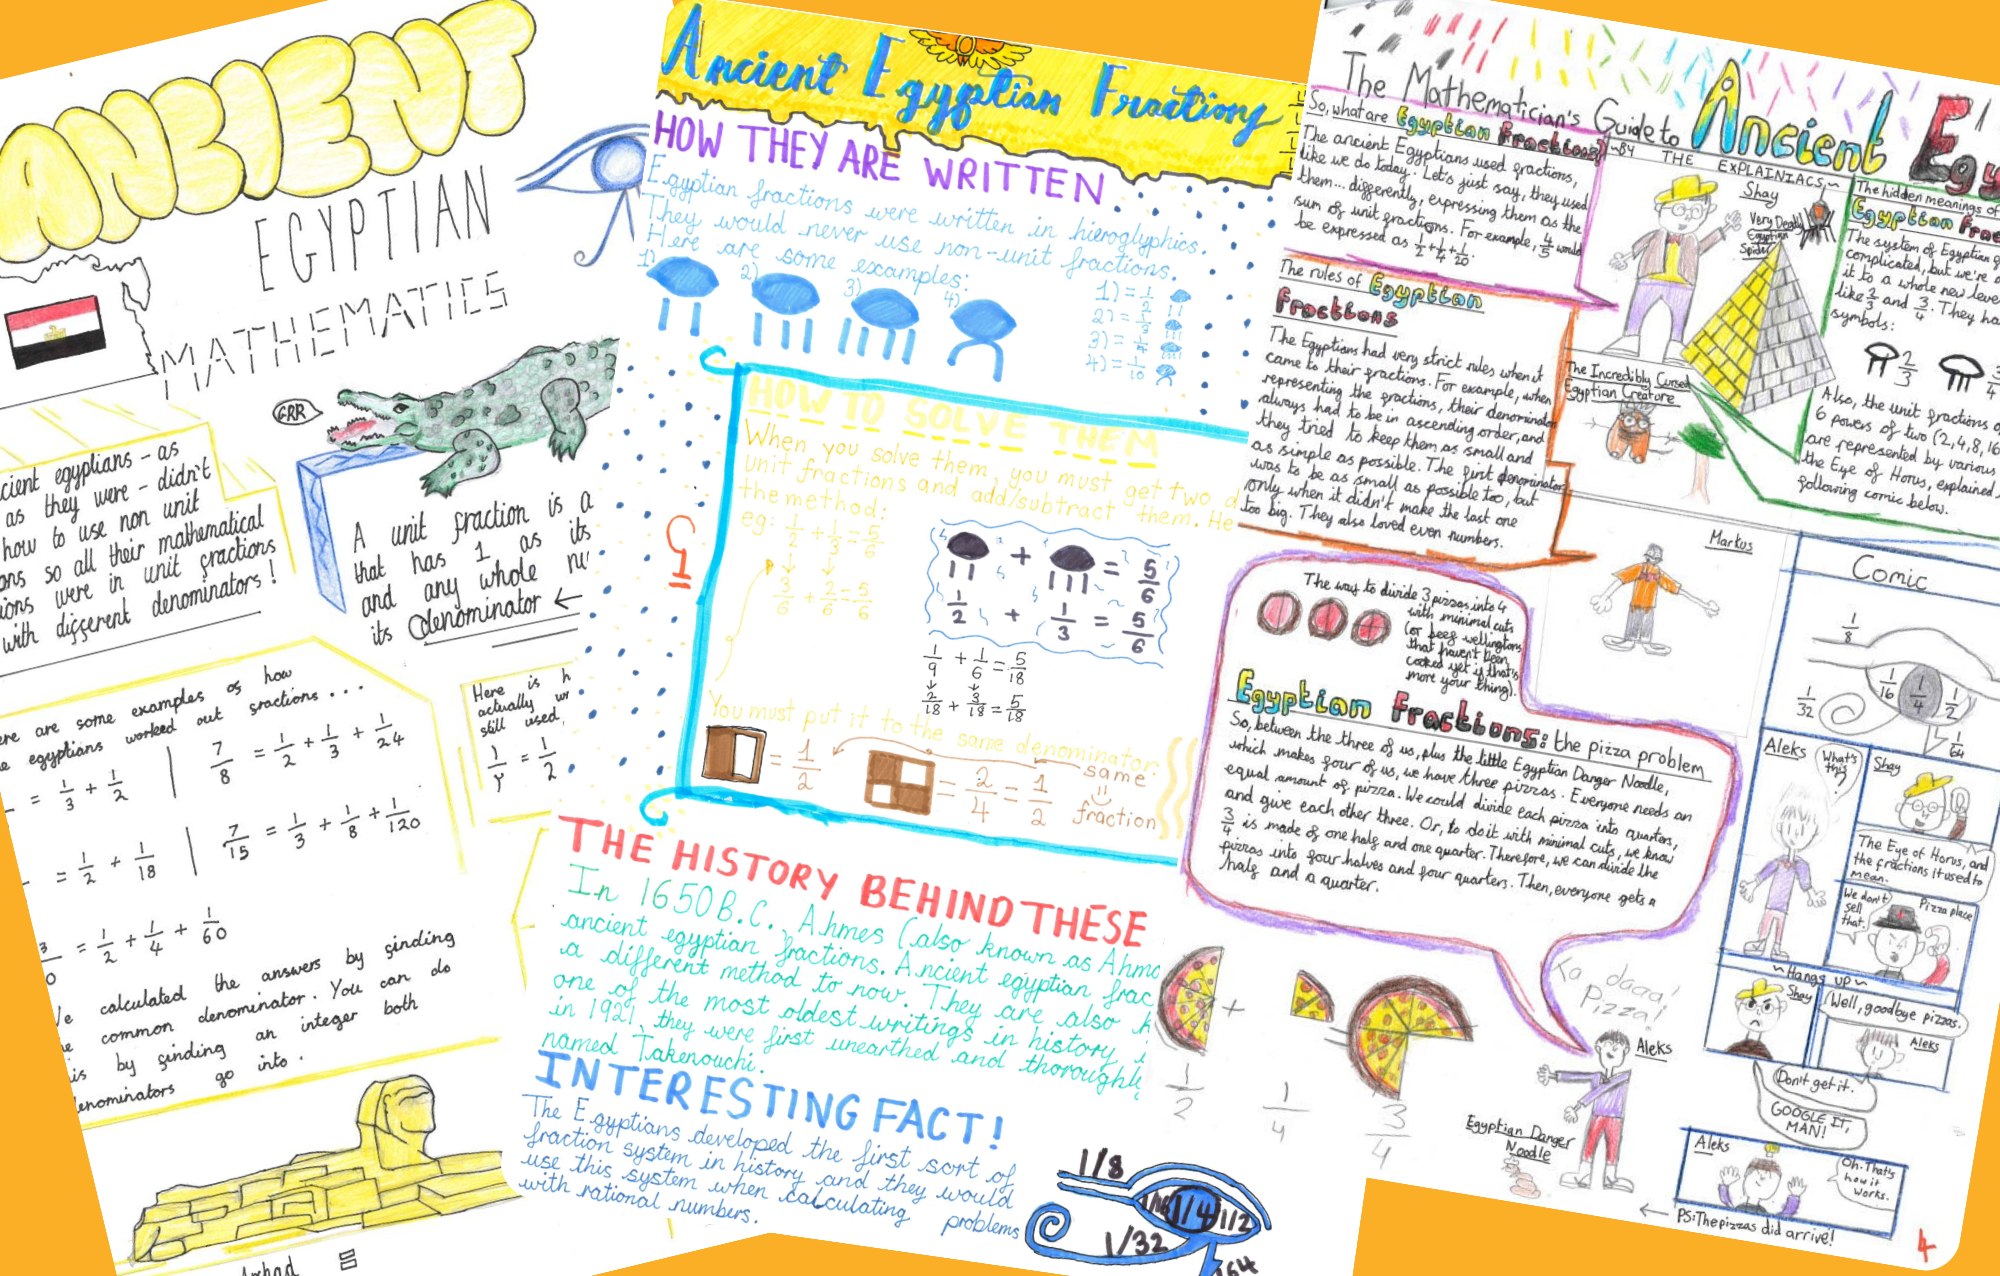 ANCIENT
EGYPTIAN
MATHEMATICS
GRR
cient egyptians - as
as they were - didn't
how to use non unit
ons so all their mathematical
ions were in unit fractions
with different denominators!
A unit fraction is a
that has 1 as its
and any whole nu
its denominator ←
ere are some examples of how
e egyptians worked out fractions...
= 1/3 + 1/2
7/8 = 1/2 + 1/3 + 1/24
= 1/2 + 1/18
7/15 = 1/3 + 1/8 + 1/120
= 1/2 + 1/4 + 1/60
We calculated the answers by finding
e common denominator. You can do
is by finding an integer both
enominators go into.
Here is h
actually wr
still used,
= 1/2
Ancient Egyptian Fractions
HOW THEY ARE WRITTEN
Egyptian fractions were written in hieroglyphics.
They would never use non-unit fractions.
Here are some examples:
1)
2)
3)
4)
1) = 1/2
2) = 1/3
3) = 1/4
4) = 1/10
HOW TO SOLVE THEM
When you solve them, you must get two d
unit fractions and add/subtract them. He
the method:
eg: 1/2 + 1/3 = 5/6
3/6 + 2/6 = 5/6
+ = 5/6
1/2 + 1/3 = 5/6
1/9 + 1/6 = 5/18
2/18 + 3/18 = 5/18
You must put it to the same denominator.
= 1/2
= 2/4 = 1/2
same
fraction
THE HISTORY BEHIND THESE
In 1650 B.C., Ahmes (also known as Ahmo
ancient egyptian fractions. Ancient egyptian frac
a different method to now. They are also k
one of the most oldest writings in history,
in 1921, they were first unearthed and thoroughly
named Takenouchi.
INTERESTING FACT!
The Egyptians developed the first sort of
fraction system in history and they would
use this system when calculating problems
with rational numbers.
1/8
1/4
1/2
1/32
The Mathematician's Guide to Ancient Egy
~BY THE EXPLAINIACS~
So, what are Egyptian Fractions?
The ancient Egyptians used fractions,
like we do today. Let's just say, they used
them... differently, expressing them as the
sum of unit fractions. For example, 4/5 would
be expressed as 1/2 + 1/4 + 1/20.
Shay
Very Deadly
Egyptian
Spider
The hidden meanings of
Egyptian Frac
The system of Egyptian f
complicated, but we're a
it to a whole new level
like 2/3 and 3/4. They ha
symbols:
2/3
3/4
Also, the unit fractions o
6 powers of two (2,4,8,16
are represented by various
the Eye of Horus, explained
following comic below.
The rules of Egyptian
Fractions
The Egyptians had very strict rules when it
came to their fractions. For example, when
representing the fractions, their denominator
always had to be in ascending order, and
they tried to keep them as small and
as simple as possible. The first denominator
was to be as small as possible too, but
only when it didn't make the last one
too big. They also loved even numbers.
The Incredibly Cursed
Egyptian Creature
Markus
The way to divide 3 pizzas into 4
with minimal cuts
(or beef wellingtons
that haven't been
cooked yet if that's
more your thing).
Egyptian Fractions: the pizza problem
So, between the three of us, plus the little Egyptian Danger Noodle,
which makes four of us, we have three pizzas. Everyone needs an
equal amount of pizza. We could divide each pizza into quarters,
and give each other three. Or, to do it with minimal cuts, we know
3/4 is made of one half and one quarter. Therefore, we can divide the
pizzas into four halves and four quarters. Then, everyone gets a
half and a quarter.
+
=
1/2
1/4
3/4
Ta daaa!
Pizza!
Aleks
Egyptian Danger
Noodle
Comic
1/8
1/16
1/4
1/2
1/32
1/64
Aleks
What's
this?
Shay
The Eye of Horus, and
the fractions it used to
mean.
We don't
sell
that.
Pizza place
~Hangs up~
Shay
Well, goodbye pizzas.
Aleks
Don't get it.
GOOGLE IT,
MAN!
Aleks
Oh. That's
how it
works.
← PS: The pizzas did arrive!
4